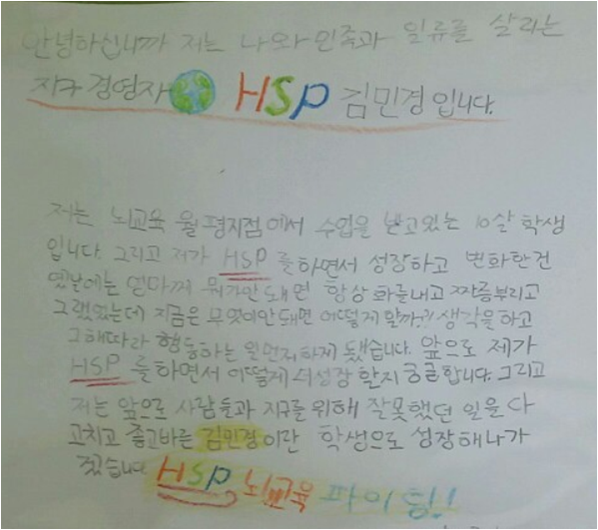 안녕하십니까 저는 나와 민족과 일류를 살리는
지구 경영자 HSP 김민경입니다.
저는 뇌교육 월평지점에서 수업을 받고있는 10살 학생
입니다. 그리고 저가 HSP를하면서 성장하고 변화한건
옛날에는 엄마께 뭐가안돼면 항상 화를내고 짜증부리고
그랬었는데 지금은 무엇이안돼면 어떻게 할까?! 생각을하고
그해따라 행동하는 일먼저하게 됐습니다. 앞으로 제가
HSP를하면서 어떻게 더성장할지 궁금합니다. 그리고
저는 앞으로 사람들과 지구를위해 잘못했던 일을 다
고치고 좋고바른 김민경이란 학생으로 성장해나가
겠습니다 HSP 뇌교육 파이팅!!